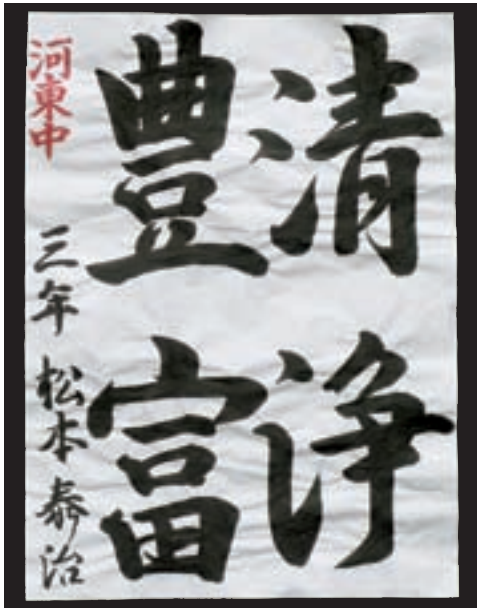 清浄
豊富
河東中
三年 松本泰治